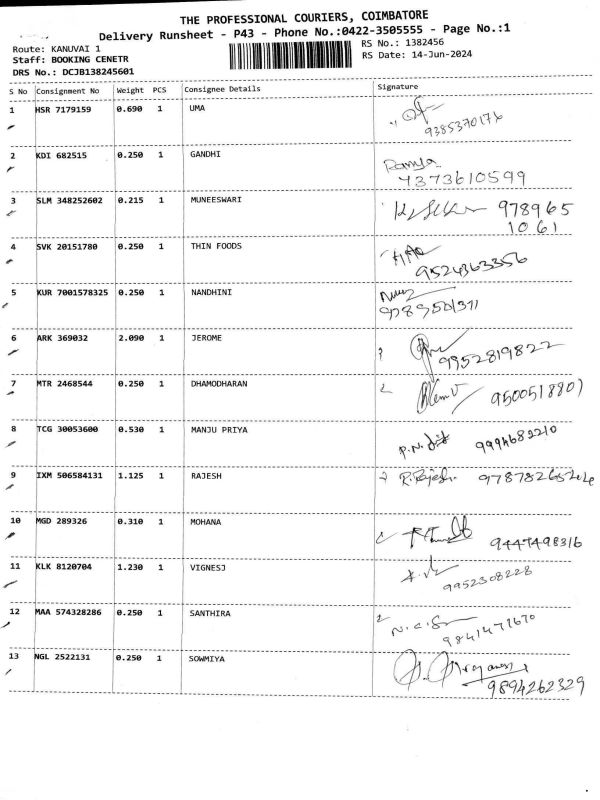 THE PROFESSIONAL COURIERS, COIMBATORE
Delivery Runsheet - P43 - Phone No.:0422-3505555 - Page No.:1
Route: KANUVAI 1
RS No.: 1382456
Staff: BOOKING CENETR
RS Date: 14-Jun-2024
DRS No.: DCJB138245601
S No Consignment No Weight PCS Consignee Details Signature
1 HSR 7179159 0.690 1 UMA
9385370176
2 KDI 682515 0.250 1 GANDHI
Ramya
4373610599
3 SLM 348252602 0.215 1 MUNEESWARI
978965
1061
4 SVK 20151780 0.250 1 THIN FOODS
9524363356
5 KUR 7001578325 0.250 1 NANDHINI
6 ARK 369032 2.090 1 JEROME
9952819822
7 MTR 2468544 0.250 1 DHAMODHARAN
9500518801
8 TCG 30053600 0.530 1 MANJU PRIYA
9994682210
9 IXM 506584131 1.125 1 RAJESH
R. Rajesh
10 MGD 289326 0.310 1 MOHANA
9447498316
11 KLK 8120704 1.230 1 VIGNESJ
9952308228
12 MAA 574328286 0.250 1 SANTHIRA
9841471670
13 NGL 2522131 0.250 1 SOWMIYA
9894262329